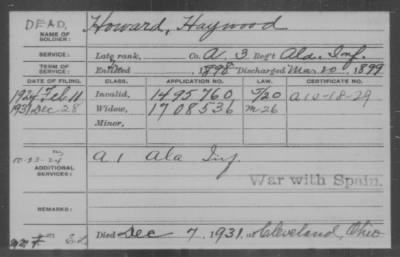 DEAD.
NAME OF SOLDIER: Howard, Haywood
SERVICE: Late rank, Co. A 3 Reg't Ala. Inf.
TERM OF SERVICE: Enlisted 1898 Discharged Mar. 20, 1899
DATE OF FILING. CLASS. APPLICATION NO. LAW. CERTIFICATE NO.
1924 Feb 11 Invalid, 1495760 5/20 A 12-18-29
1931 Dec 28 Widow, 1708536 M-26
Minor,
10-23-24
ADDITIONAL SERVICES: A 1 Ala Inf
War with Spain.
REMARKS:
Died Dec 7, 1931, at Cleveland, Ohio